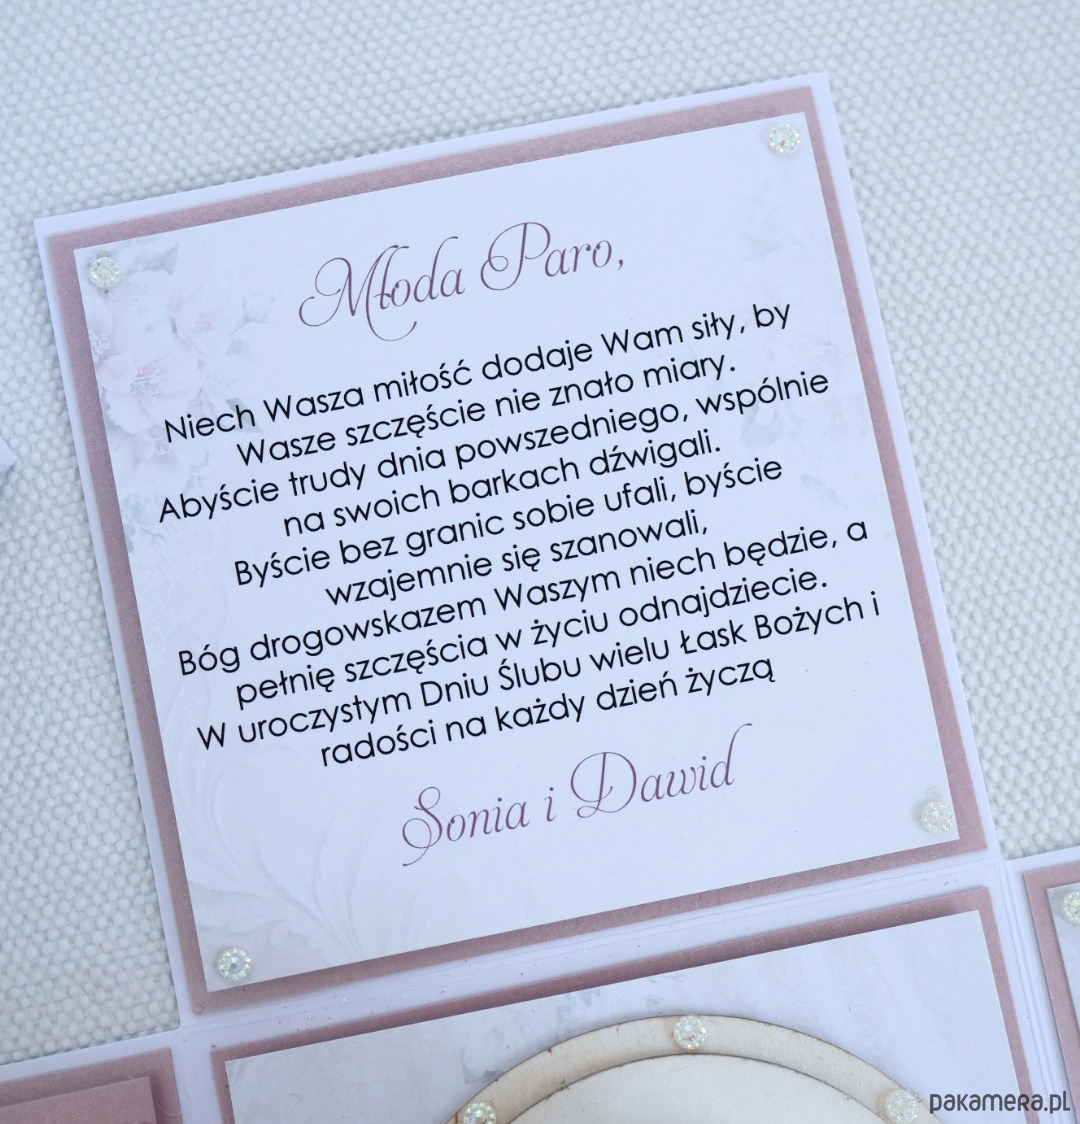 Młoda Paro,
Niech Wasza miłość dodaje Wam siły, by
Wasze szczęście nie znało miary.
Abyście trudy dnia powszedniego, wspólnie
na swoich barkach dźwigali.
Byście bez granic sobie ufali, byście
wzajemnie się szanowali,
Bóg drogowskazem Waszym niech będzie, a
pełnię szczęścia w życiu odnajdziecie.
W uroczystym Dniu Ślubu wielu Łask Bożych i
radości na każdy dzień życzą
Sonia i Dawid
pakamera.pl